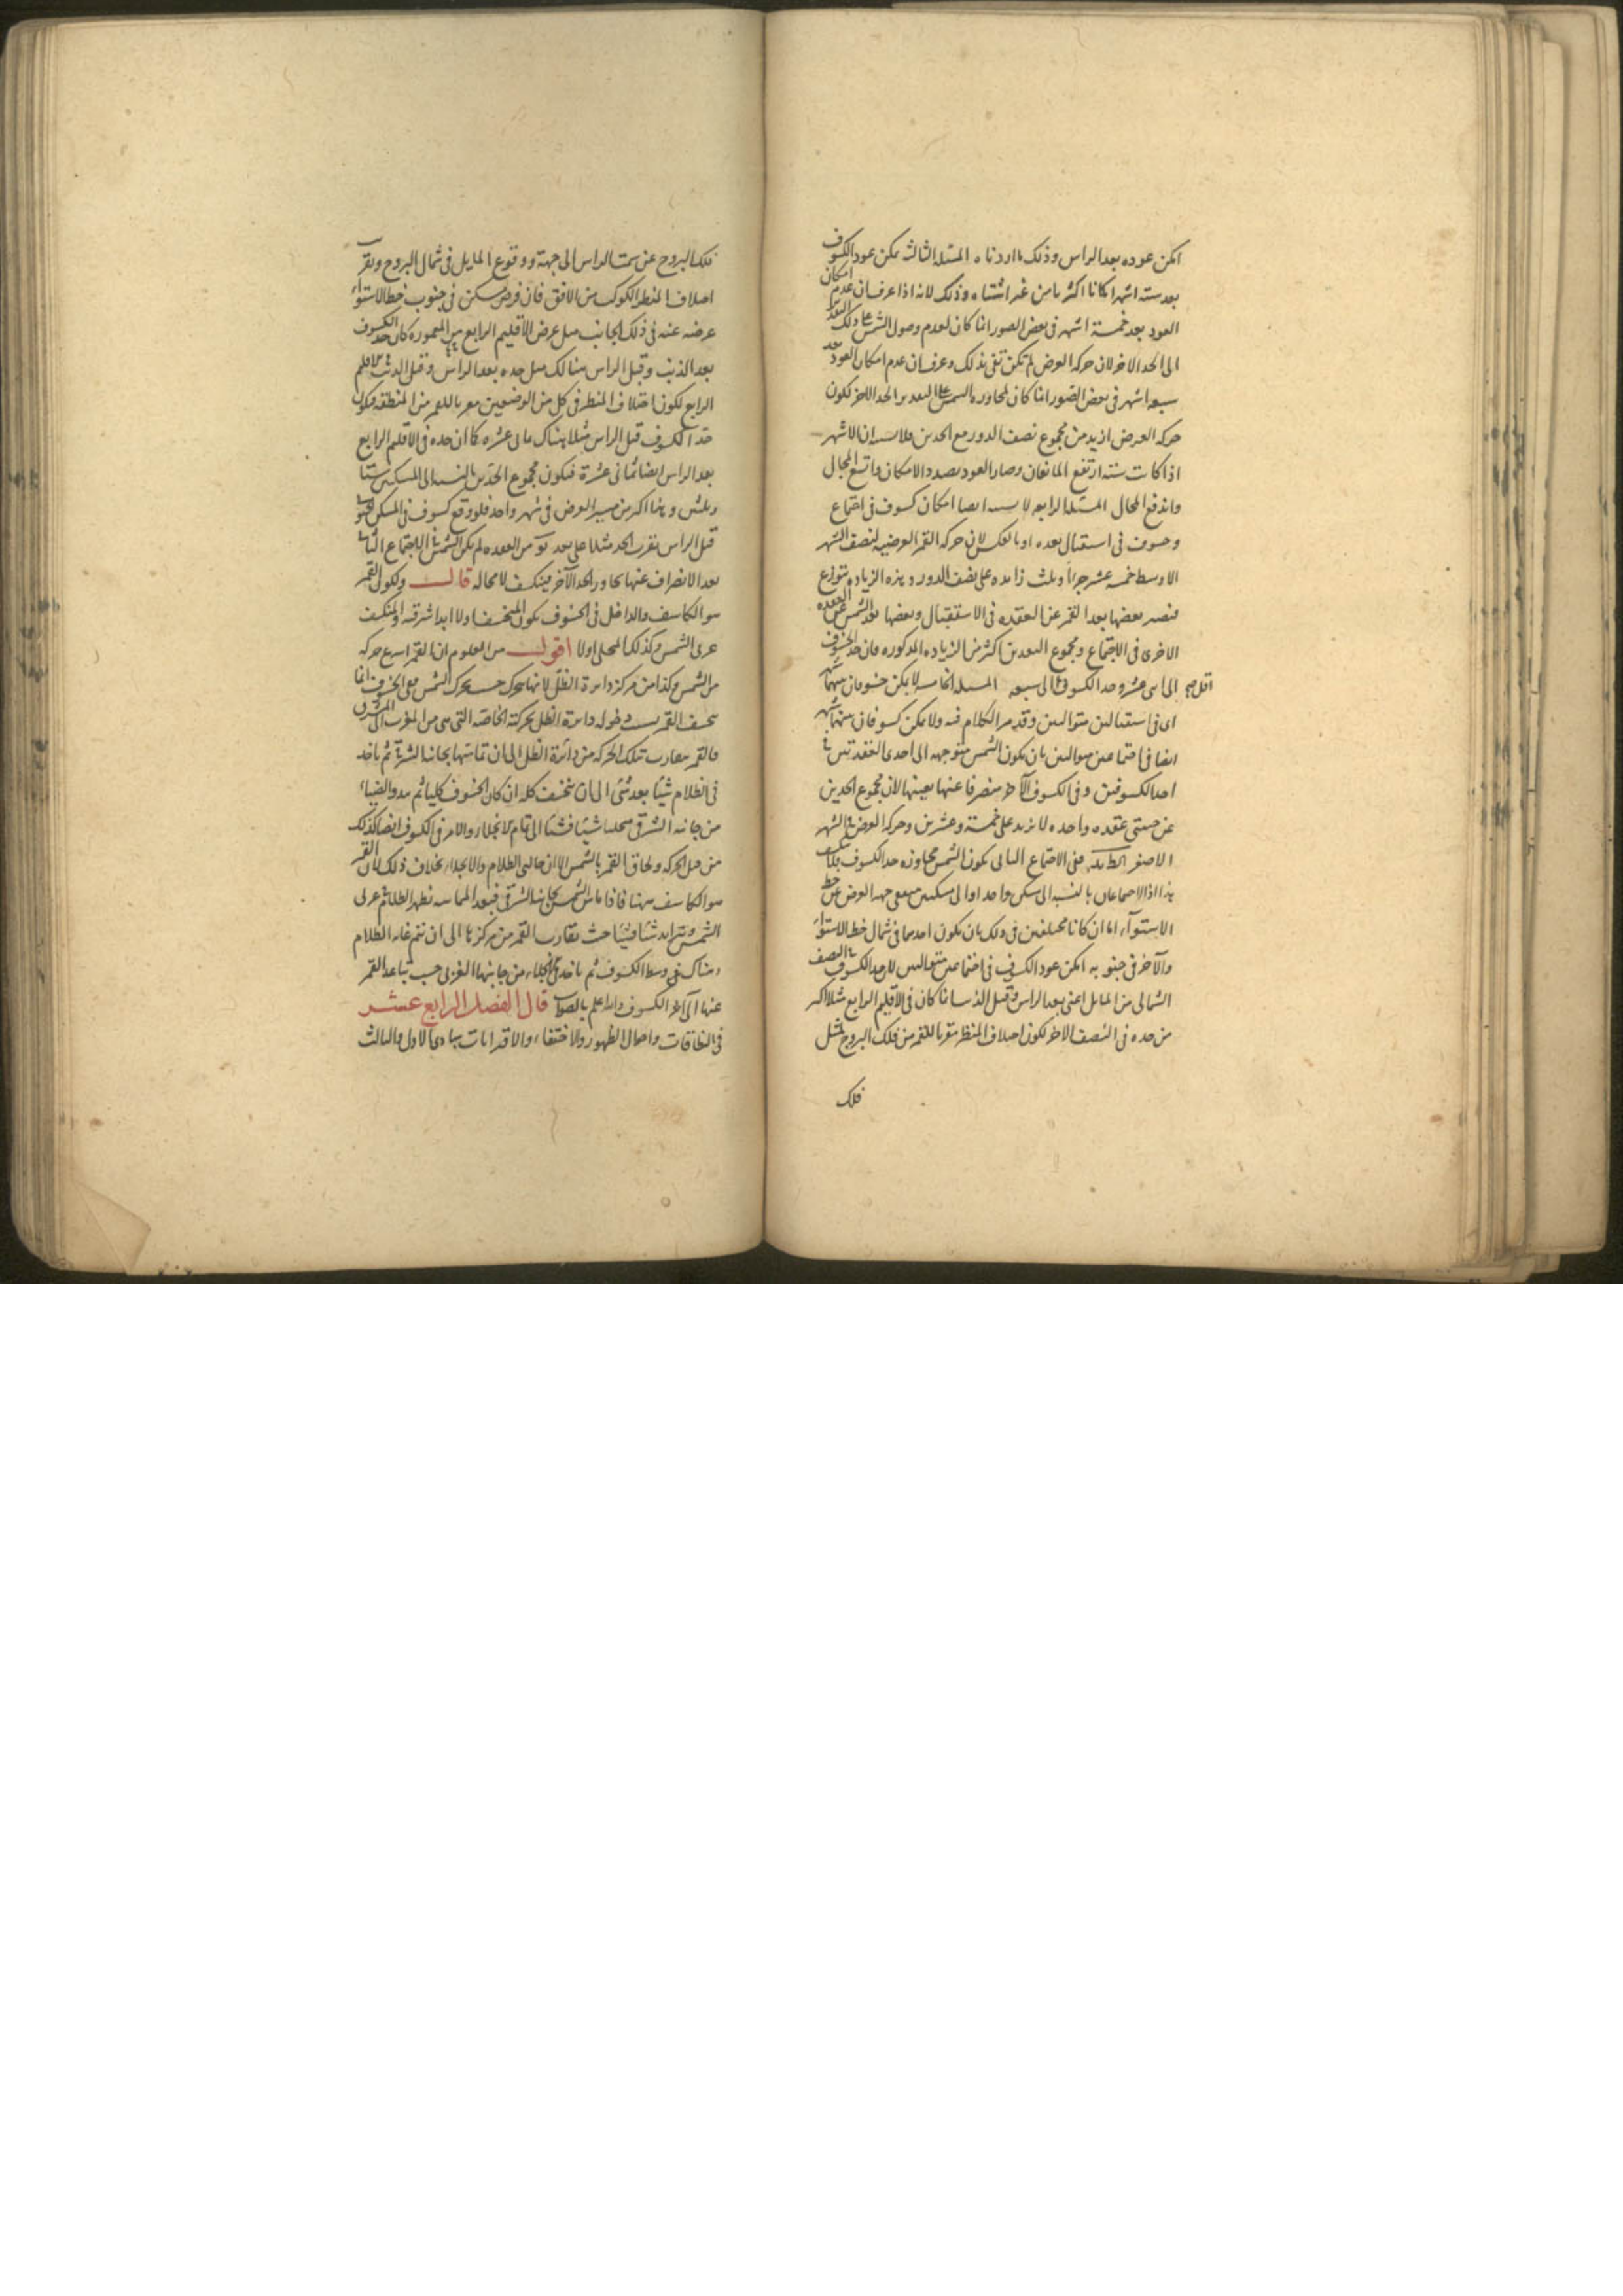 امكن عوده بعد الراس وذلك ما اردناه المسئلة الثالثة يمكن عود الكسوف
بعد ستة اشهر امكانا اكثريا من غير اشتباه وذلك لانه اذا عرف ان عدم امكان
العود بعد خمسة اشهر فى بعض الصور انما كان لعدم وصول الشمس فى ذلك البعد
الى الحد الاخر لان حركة العرض لم تكن تفى بذلك وعرف ان عدم امكان العود بعد
سبعة اشهر فى بعض الصور انما كان لمجاوزة الشمس البعد من الحد الاخر لكون
حركة العرض ازيد من مجموع نصف الدور مع الحدين فلا شبهة ان الاشهر
اذا كانت ستة ارتفع المانعان وصار العود بصدد الامكان واتسع المجال
واندفع المحال المسئلة الرابعة لا شبهة ايضا امكان كسوف فى اجتماع
وخسوف فى استقبال بعده او بالعكس لان حركة القمر العرضية لنصف الشهر
الاوسط خمسة عشر جزءا وثلث زائدة على نصف الدور وهذه الزيادة تتوزع
فيصير بعضها بعد القمر عن العقدة فى الاستقبال وبعضها بعد الشمس عن العقدة
الاخرى فى الاجتماع ومجموع البعدين اكثر من الزيادة المذكورة فان حد الخسوف
الى اثنى عشر وحد الكسوف الى سبعة المسئلة الخامسة لا يمكن خسوفان بينهما شهر
اى فى استقبالين متواليين وقد مر الكلام فيه ولا يمكن كسوفان بينهما شهر
ايضا فى اجتماعين متواليين بان يكون الشمس متوجهة الى احدى العقدتين فى
احد الكسوفين وفى الكسوف الآخر منصرفا عنها بعينها لان مجموع الحدين
عن جنبتى عقدة واحدة لا يزيد على خمسة وعشرين وحركة العرض فى الشهر
الاصغر ففى الاجتماع الثانى يكون الشمس مجاوزة حد الكسوف فلا تنكسف
هذا اذا الاجتماعان بالنسبة الى مسكن واحد او الى مسكنين متفقى جهة العرض عن خط
الاستوآء اما ان كانا مختلفين فى ذلك بان يكون احدهما فى شمال خط الاستواء
والآخر فى جنوبه امكن عود الكسوف فى اجتماعين متتاليين لان حد الكسوف فى النصف
الشمالى من المايل اعنى بعد الراس وقبل الذنب انما كان فى الاقليم الرابع مثلا اكبر
من حده فى النصف الاخر لكون اختلاف المنظر مقربا للقمر من فلك البروج لميل
فلك
فلك البروج عن سمت الراس الى جهة ووقوع المايل فى شمال البروج وتقرب
اختلاف المنظر الكوكب من الافق فان فرض مسكن فى جنوب خط الاستواء
عرضه عنه فى ذلك الجانب مثل عرض الاقليم الرابع من المعمورة كان حد الكسوف
بعد الذنب وقبل الراس هنالك مثل حده بعد الراس وقبل الذنب فى الاقليم
الرابع لكون اختلاف المنظر فى كل من الوضعين مقربا للقمر من المنطقة فيكون
حد الكسوف قبل الراس مثلا هناك ثمانى عشرة كما ان حده فى الاقليم الرابع
بعد الراس ايضا ثمانى عشرة فيكون مجموع الحدين بالنسبة الى المسكنين ستا
وثلثين وهما اكبر من مسير العرض فى شهر واحد فلو وقع كسوف فى المسكن الجنوبى
قبل الراس بقرب الحد مثلا على بعد من العقدة لم يكن الشمس فى الاجتماع الثانى
بعد الانصراف عنها تجاوز الحد الآخر فينكسف لا محالة قال ولكون القمر
هو الكاسف والداخل فى الخسوف يكون المنخسف اولا ابدا شرقيه والمنكسف
غربى الشمس وكذلك المنجلى اولا اقول من المعلوم ان القمر اسرع حركة
من الشمس وكذا من مركز دائرة الظل لانها تتحرك حسب تحرك الشمس مع الخسوف انما
تخسف القمر بسبب دخوله دائرة الظل بحركته الخاصة التى هى من المغرب الى المشرق
فالقمر يقارب بتلك الحركة من دائرة الظل الى ان تماسها بجانبه الشرقى ثم ياخذ
فى الظلام شيئا بعد شئ الى ان ينخسف كله ان كان الخسوف كليا ثم يبدو الضياء
من جانبه الشرقى منجليا شيئا فشيئا الى تمام الانجلاء والامر فى الكسوف ايضا كذلك
من قبل الحركة ولحاق القمر بالشمس الا ان حالتى الظلام والانجلاء بخلاف ذلك لان القمر
هو الكاسف ههنا فاذا ماس الشمس بجانبه الشرقى فبعد المماسة تظهر الظلام غربى
الشمس وتتزايد شيئا فشيئا حيث يقارب القمر من مركزها الى ان تتم غاية الظلام
هناك فى وسط الكسوف ثم ياخذ فى الانجلاء من جانبها الغربى حسب تباعد القمر
عنها الى آخر الكسوف والله اعلم بالصواب قال الفصل الرابع عشر
فى النطاقات واحوال الظهور والاختفاء والاقترانات مبادى الاول والثالث